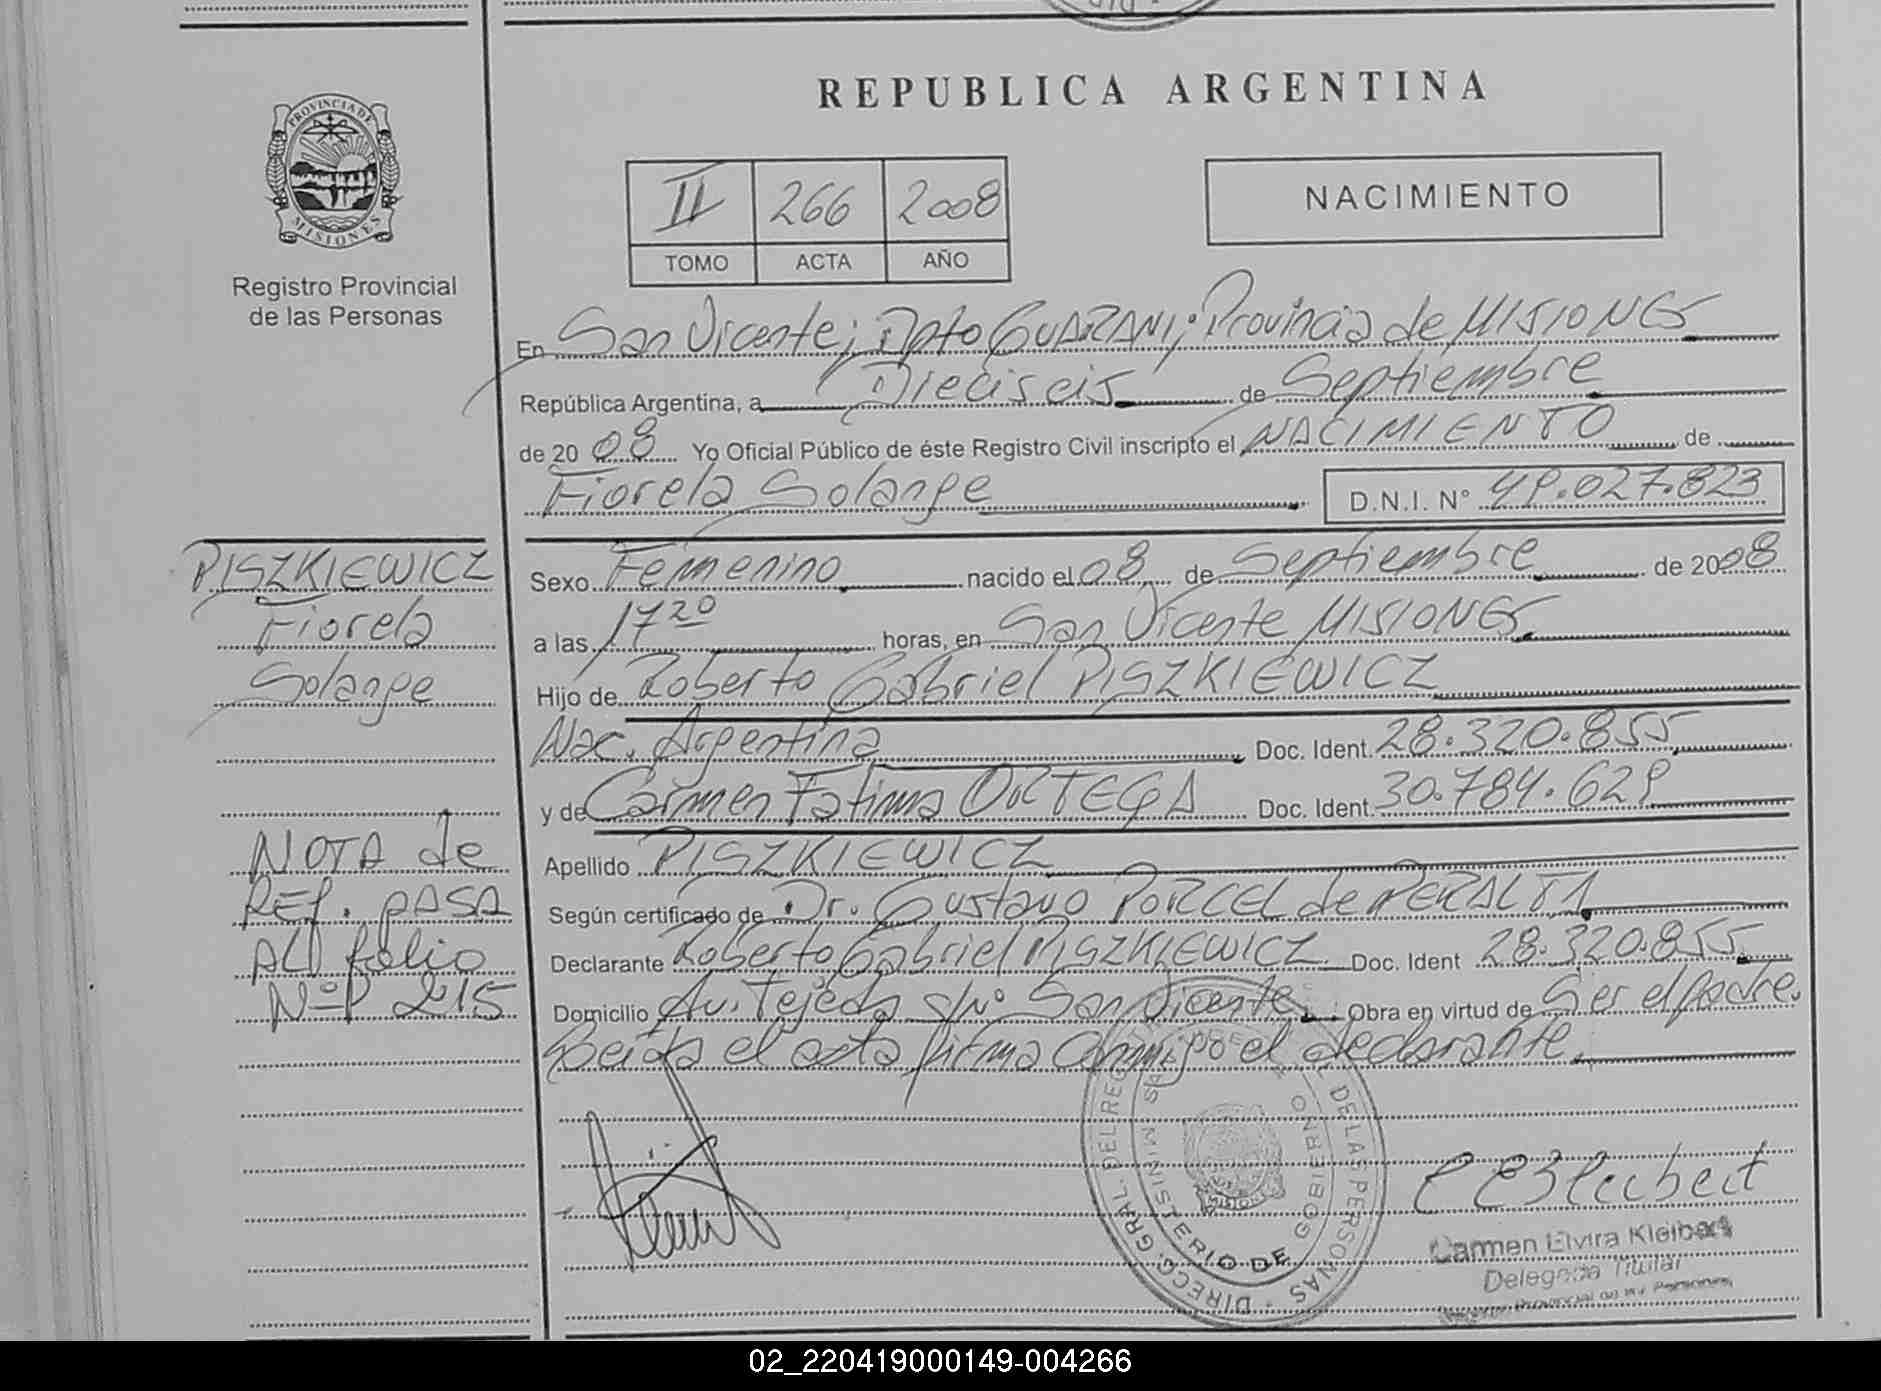 REPUBLICA ARGENTINA
PROVINCIA DE
MISIONES
Registro Provincial
de las Personas
II 266 2008
TOMO ACTA AÑO
NACIMIENTO
En San Vicente; Dpto GUARANI; Provincia de MISIONES
República Argentina, a Dieciseis de Septiembre
de 2008 Yo Oficial Público de éste Registro Civil inscripto el NACIMIENTO de
Fiorela Solange D.N.I. N° 49.027.823
PISZKIEWICZ
Fiorela
Solange
Sexo Femenino nacido el 08 de Septiembre de 2008
a las 17 20 horas, en San Vicente MISIONES
Hijo de Roberto Gabriel PISZKIEWICZ
Nac. Argentina Doc. Ident. 28.320.855
y de Carmen Fatima ORTEGA Doc. Ident. 30.784.629
Apellido PISZKIEWICZ
Según certificado de Dr. Gustavo PORCEL de PERALTA
Declarante Roberto Gabriel PISZKIEWICZ Doc. Ident 28.320.855
Domicilio Av. Tejeda s/Nº San Vicente. Obra en virtud de Ser el padre.
Leida el acta firma Conmigo el declarante.
NOTA de
REF. pASA
AL folio
Nº 215
DIRECC. GRAL. DEL REG DE LAS PERSONAS
MINISTERIO DE GOBIERNO
MISIONES
Carmen Elvira Kleibert
Delegada Titular
Registro Provincial de las Personas
02_220419000149-004266